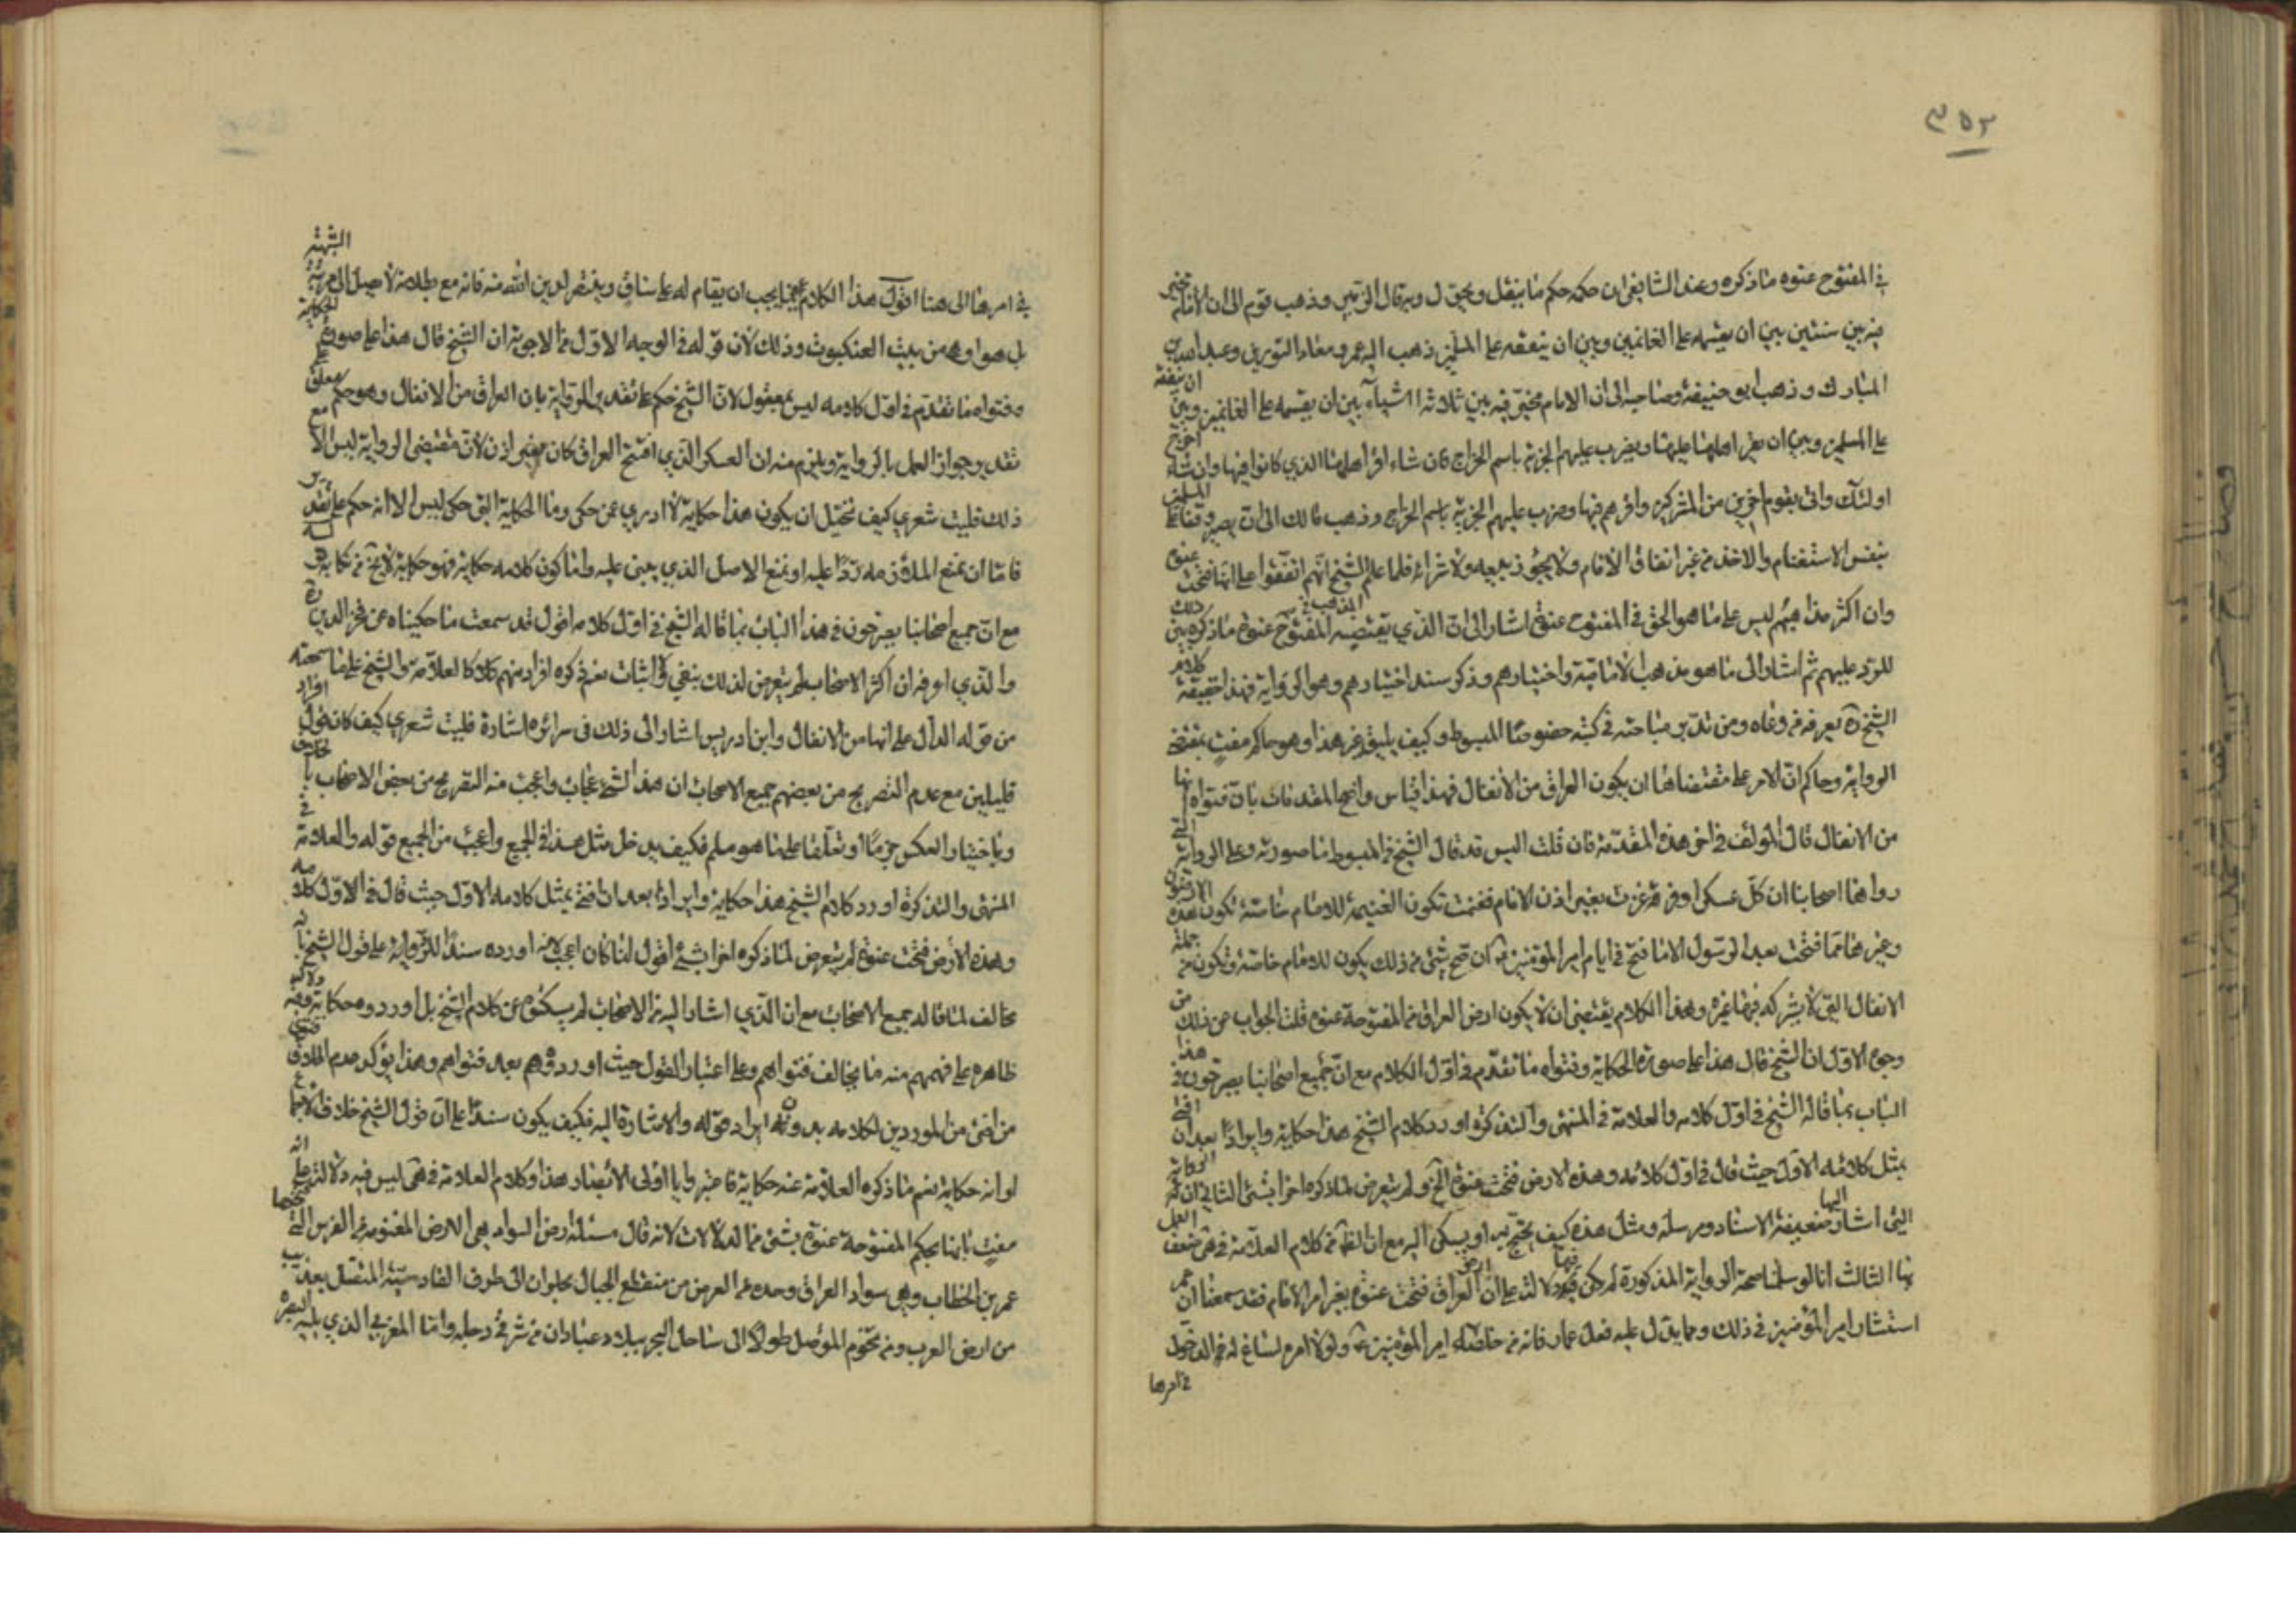 ٣٥٢
في المفتوح عنوه ما ذكره وعند الشافعي ان حكمه حكم ما ينقل ويحول وبه قال الزبير وذهب قوم الى ان الامام مخير
فيه بين شيئين بين ان يقسمه على الغانمين وبين ان يقفه على المسلمين ذهب اليه عمر ومعاذ والثوري وعبد الله بن
المبارك وذهب ابو حنيفة وصاحباه الى ان الامام مخير فيه بين ثلاثة اشياء بين ان يقسمه على الغانمين وبين ان يقفه
على المسلمين وبين ان يقر اهلها عليها ويضرب عليهم الجزية باسم الخراج فان شاء اقر اهلها الذي كانوا فيها وان شاء اخرج
اولئك واتى بقوم اخرين من المشركين واقرهم فيها وضرب عليهم الجزية باسم الخراج وذهب مالك الى ان يصير وقفا على المسلمين
بنفس الاستغنام والاخذ من غير ايقاف الامام ولا يجوز بيعه ولا شرائه فلما علم الشيخ انهم اتفقوا على انها فتحت عنوة
وان اكثر مذاهبهم ليس على ما هو الحق في المفتوح عنوة اشار الى ان الذي يقتضيه المذهب في المفتوح عنوة ما ذكره بين ذلك
للرد عليهم ثم اشار الى ما هو مذهب الامامية واختيارهم وذكر سند اختيارهم وهو الرواية فهذا حقيقة كلام
الشيخ ره يعرفه من وعاه ومن تدبر مباحثه في كتبه خصوصا المبسوط وكيف يليق غير هذا وهو حاكم مفت بمقتضى
الرواية وحاكم ان الامر على مقتضاها ان يكون العراق من الانفال فهذا قياس واضح المقدمات بان فتواه انها
من الانفال قال المؤلف في اخر هذه المقدمة فان قلت اليس قد قال الشيخ في المبسوط ما صورته وعلى الرواية التي
رواها اصحابنا ان كل عسكر او فرقة غزت بغير اذن الامام فغنمت تكون الغنيمة للامام خاصة تكون هذه الارضون
وغيرها مما فتحت بعد الرسول الا ما فتح في ايام امير المؤمنين ع ان صح شيء من ذلك يكون للامام خاصة وتكون من جملة
الانفال التي لا يشركه فيها غيره وهذا الكلام يقتضي ان لا يكون ارض العراق من المفتوحة عنوة قلت الجواب عن ذلك من
وجوه الاول ان الشيخ قال هذا على صورة الحكاية وفتواه ما تقدم في اول الكلام مع ان جميع اصحابنا يصرحون في هذا
الباب بما قاله الشيخ في اول كلامه والعلامة في المنتهى والتذكرة اورد كلام الشيخ هذا حكاية وايرادا بعد ان افتى
بمثل كلامه الاول حيث قال في اول كلامه وهذه الارض فتحت عنوة الخ ولم يتعرض لما ذكره اخرا بشيء الثاني ان الرواية
التي اشار اليها ضعيفة الاسناد ومرسلة ومثل هذه كيف يحتج به او يسكن اليه مع ان الظ من كلام العلامة في هى ضعف العمل
بها الثالث انا لو سلمنا صحة الرواية المذكورة لم يكن فيها دلالة على ان ارض العراق فتحت عنوة بغير امر الامام فقد سمعنا ان عمر
استشار امير المؤمنين في ذلك ومما يدل عليه فعل عمار فانه من خاصة امير المؤمنين ع ولولا امره لما ساغ له الدخول
في امرها
في امرها الى هنا اقول هذا الكلام مما يجب ان يقام له على ساق وينتصر لدين الله منه فانه مع طلاوته لا اصل له الشبهة
بل هو اوهن من بيت العنكبوت وذلك لان قوله في الوجه الاول من الاجوبة ان الشيخ قال هذا على صورة الحكاية
وفتواه ما تقدم في اول كلامه ليس بمعقول لان الشيخ حكم على تقدير الرواية بان العراق من الانفال وهو حكم معلق على
تقدير جواز العمل بالرواية ويلزم منه ان العسكر الذي افتتح العراق كان بغير اذن لان مقتضى الرواية ليس الا
ذلك فليت شعري كيف تخيل ان يكون هذا حكاية لا ادري عمن حكى وما الحكاية التي حكى ليس الا انه حكم على تقدير
فاما ان يمنع الملازمة ردا عليه او يمنع الاصل الذي يبنى عليه واما كون كلامه حكاية فهو حكاية
مع ان جميع اصحابنا يصرحون في هذا الباب بما قاله الشيخ في اول كلامه اقول قد سمعت ما حكيناه عن فخر الدين ره
والذي اعرفه ان اكثر الاصحاب لم يتعرض لذلك بنفي ولا اثبات نعم ذكره افراد منهم كالعلامة والشيخ على ما سمعته
من قوله الدال على انها من الانفال وابن ادريس اشار الى ذلك في سرائره اشارة فليت شعري كيف كان قول افراد
قليلين مع عدم التصريح من بعضهم جميع الاصحاب ان هذا الشيء عجاب واعجب منه التصريح من بعض الاصحاب بخلافه
وباختيار العكس جزما او تعلقا على ما هو مسلم فكيف يدخل مثل هذا في الجميع واعجب من الجميع قوله والعلامة في
المنتهى والتذكرة اورد كلام الشيخ هذا حكاية وايرادا بعد ان افتى بمثل كلامه الاول حيث قال في الاول كلامه
وهذه الارض فتحت عنوة لم يتعرض لما ذكره اخرا بشيء اقول انما كان اعجب لانه اورده سندا للرواية على قول الشيخ بانه
مخالف لما قاله جميع الاصحاب مع ان الذي اشار اليه من الاصحاب لم يسكتوا عن كلام الشيخ بل اوردوه حكاية
ظاهره على فهمهم منه ما يخالف فتواهم وعلى اعتبار القول حيث اوردوه بعد فتواهم وهذا يؤكد عدم
من افتى من الموردين لكلامه بدونه ايراد قوله والاشارة اليه فكيف يكون سندا على ان قول الشيخ خلاف الاجماع
لو انه حكاية نعم ما ذكره العلامة عنه حكاية فاعتبروا يا اولى الابصار هذا وكلام العلامة في هى ليس فيه دلالة على انه
مفت بانها بحكم المفتوحة عنوة بشيء من الدلالات لانه قال مسئلة ارض السواد هي الارض المغنومة من الفرس التي فتحها
عمر بن الخطاب وهي سواد العراق وحده في العرض من منقطع الجبال بحلوان الى طرف القادسية المتصل بعذيب
من ارض العرب ومن تخوم الموصل طولا الى ساحل البحر ببلاد عبادان من شرقي دجلة واما الغربي الذي يليه البصرة